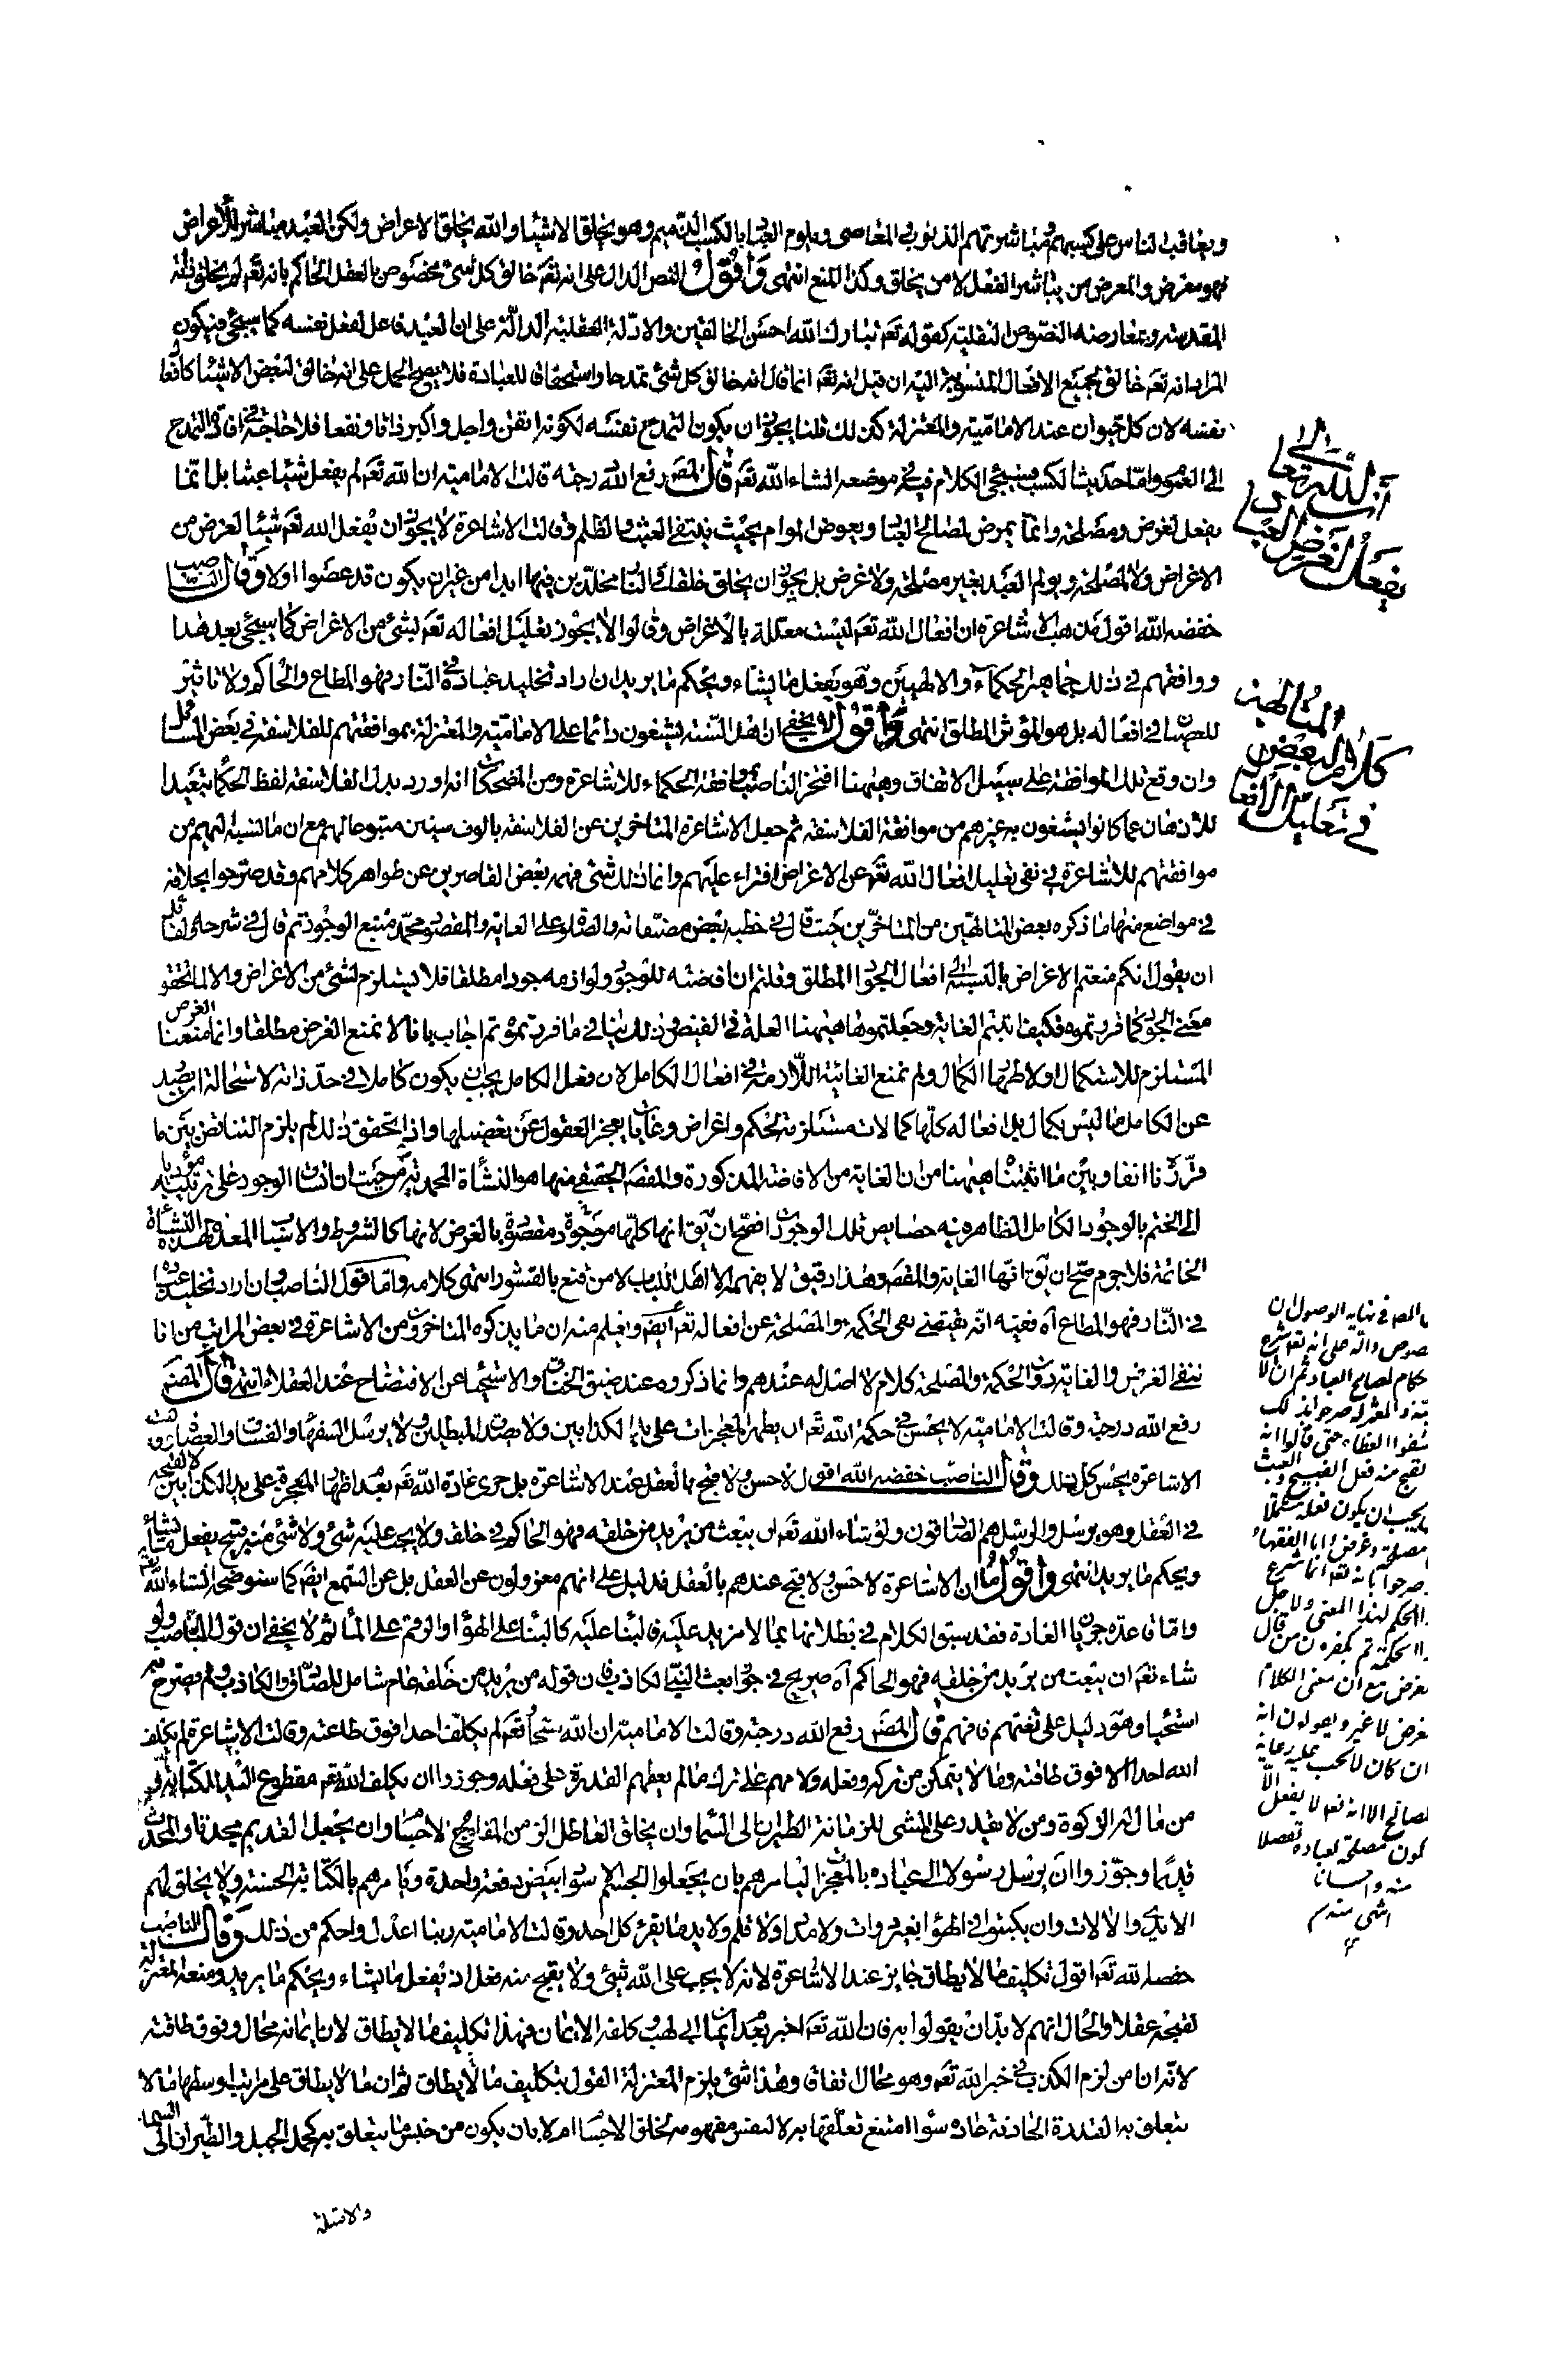 ويعاقب الناس على كسبهم ومباشرتهم الذنوب والمعاصي ويلوم العباد بالكسب الذميم وهو يخلق الاشياء والله يخلق الاعراض ولكن العبد مباشر للاعراض
فهو معرض والمعرض من يباشر الفعل لا من يخلق وكذا المنع انتهى واقول النص الدال على انه تعم خالق كل شئ مخصوص بالعقل الحاكم بانه تعم لم يخلق ذاته
المقدسة وتعارضه النصوص النقلية كقوله تعم تبارك الله احسن الخالقين والادلة العقلية الدالة على ان العبد فاعل لفعل نفسه كما سيجئ فيكون
المراد انه تعم خالق لجميع الافعال المنسوبة اليه ان قيل انه تعم انما قال انه خالق كل شئ تمدحا واستحقاقا للعبادة فلا يصح الحمل على انه خالق لبعض الاشياء كافعال
نفسه لان كل حيوان عند الامامية والمعتزلة كذلك قلنا يجوز ان يكون التمدح نفسه لكونه اتقن واجل واكبر ذاتا ونفعا فلا حاجة في افادة التمدح
الى العموم واما حديث الكسب فسيجئ الكلام فيه في موضعه انشاء الله تعم قال المص رفع الله درجته قالت الامامية ان الله تعم لم يفعل شيئا عبثا بل انما
يفعل لغرض ومصلحة وانما يمرض لمصالح العباد ويعوض المولم بحيث ينتفي العبث والظلم وقالت الاشاعرة لا يجوز ان يفعل الله تعم شيئا لغرض من
الاغراض ولا لمصلحة ويولم العبد بغير مصلحة ولا غرض بل يجوز ان يخلق خلقا في النار مخلدين فيها ابدا من غير ان يكون قد عصوا اولا وقال الناصب
خفضه الله اقول مذهب الاشاعرة ان افعال الله تعم ليست معللة بالاغراض وقالوا لا يجوز تعليل افعاله تعم بشئ من الاغراض كما سيجئ بعد هذا
ووافقهم في ذلك جماهير الحكماء والالهيين وهو يفعل ما يشاء ويحكم ما يريد ان اراد تخليد عباده في النار فهو المطاع والحاكم ولا تاثير
للعصيان في افعاله بل هو المؤثر المطلق انتهى واقول لا يخفى ان اهل السنة يشنعون دائما على الامامية والمعتزلة بموافقتهم للفلاسفة في بعض المسائل
وان وقع تلك الموافقة على سبيل الاتفاق وههنا افتخر الناصب بموافقة الحكماء للاشاعرة ومن المضحكات انه اورد بدل الفلاسفة لفظ الحكماء تبعيدا
للاذهان عما كانوا يشنعون به غيرهم من موافقة الفلاسفة ثم جعل الاشاعرة المتاخرين عن الفلاسفة بالوف سنين متبوعا لهم مع ان ما نسبه اليهم من
موافقتهم للاشاعرة في نفي تعليل افعال الله تعم عن الاغراض افتراء عليهم وانما ذلك شئ فهمه بعض القاصرين عن ظواهر كلامهم وقد صرحوا بخلافه
في مواضع منها ما ذكره بعض المتالهين من المتاخرين حيث قال في خطبة بعض مصنفاته والصلوة على الغاية والمقصود محمد منبع الوجود ثم قال في شرحه لقائل
ان يقول انكم منعتم الاغراض بالنسبة الى افعال الجواد المطلق وقلتم ان افاضته للوجود ولوازمه جودا مطلقا فلا يستلزم لشئ من الاغراض والا لما تحقق
معنى الجود كما قررتموه فكيف اثبتم الغاية وجعلتموها هيهنا العلة في الفيض وذلك ينافي ما قررتموه ثم اجاب بانا لا نمنع الغرض مطلقا وانما منعنا الغرض
المستلزم للاستكمال او لاظهار الكمال ولم نمنع الغائية اللازمة في افعال الكامل لان فعل الكامل يجب ان يكون كاملا في حد ذاته لاستحالة ان يصدر
عن الكامل ما ليس بكمال بل افعاله كلها كمالات مستلزمة لحكم واغراض وغايات يعجز العقول عن تفصيلها واذا تحقق ذلك لم يلزم التناقض بين ما
قررنا انفا وبين ما اثبتنا هيهنا من ان الغاية من الافاضة المذكورة والمقصد الحقيقي منها هو النشأة المحمدية من حيث ان انسان الوجود على ترتيبه مؤد بها
الى الختم بالوجود الكامل الظاهر فيه خصايص تلك الوجودات فصح ان يق انها كلها موجودة مقصودة بالغرض لانها كالشروط والاسباب المعدة لهذه النشأة
الخاتمة فلا جرم صح ان يق انها الغاية والمقصد وهذا دقيق لا يفهمه الا اهل اللباب لا من قنع بالقشور انتهى كلامه واما قول الناصب وان اراد تخليد عباده
في النار فهو المطاع آه ففيه انه يقتضي نفي الحكمة والمصلحة عن افعاله تعم ايضا ويعلم منه ان ما يذكره المتاخرون من الاشاعرة في بعض المراتب من انا
ننفي الغرض والغاية دون الحكمة والمصلحة كلام لا اصل له عندهم وانما ذكروه عند ضيق الخناق والاستحياء عن الافتضاح عند العقلاء انتهى قال المص
رفع الله درجته وقالت الامامية لا يحسن في حكمة الله تعم ان يظهر المعجزات على يد الكذابين ولا يصدق المبطلين ولا يرسل السفهاء والفساق والعصاة وقالت
الاشاعرة يحسن كل ذلك وقال الناصب خفضه الله اقول لا حسن ولا قبح بالعقل عند الاشاعرة بل جرى عادة الله تعم بعدم اظهار المعجزة على يد الكذابين لا لقبحه
في العقل وهو يرسل الرسل وهم الصادقون ولو شاء الله تعم ان يبعث من يريد من خلقه فهو الحاكم في خلقه ولا يجب عليه شئ ولا شئ منه قبيح يفعل ما يشاء
ويحكم ما يريد انتهى واقول ما ان الاشاعرة لا حسن ولا قبح عندهم بالعقل فدليل على انهم معزولون عن العقل بل عن السمع ايضا كما سنوضحه انشاء الله تعم
واما قاعدة جريان العادة فقد سبق الكلام في بطلانها بما لا مزيد عليه فالبناء عليه كالبناء على الهواء او الرقم على الماء ثم لا يخفى ان قول الناصب ولو
شاء تعم ان يبعث من يريد من خلقه فهو الحاكم آه صريح في جواز بعث النبي الكاذب فان قوله من يريد من خلقه عام شامل للصادق والكاذب ولم يصرح به
استحياء وهو دليل على تعنتهم فافهم قال المص رفع الله درجته وقالت الامامية ان الله سبحانه تعم لم يكلف احدا فوق طاقته وقالت الاشاعرة لم يكلف
الله احدا الا فوق طاقته وما لا يتمكن من تركه وفعله ولامهم على ترك ما لم يعطهم القدرة على فعله وجوزوا ان يكلف الله تعم مقطوع اليد الكتابة
من مال له الزكوة ومن لا يقدر على المشي للزمانة الطيران الى السماء وان يخلق العاطل الزمن المفلوج الاجسام وان يجعل القديم محدثا والمحدث
قديما وجوزوا ان يرسل رسولا الى عباده بالمعجزات ليامرهم بان يجعلوا الجسم الاسود ابيض دفعة واحدة ويامرهم بالكتابة الحسنة ولا يخلق لهم
الايدي والالات وان يكتبوا في الهواء بغير دوات ولا مداد ولا قلم ولا يد ما يقرء كل احد وقالت الامامية ربنا اعدل واحكم من ذلك وقال الناصب
خفضه الله تعم اقول تكليف ما لا يطاق جايز عند الاشاعرة لانه لا يجب على الله شئ ولا يقبح منه فعل اذ يفعل ما يشاء ويحكم ما يريد ومنعه المعتزلة
لقبحه عقلا والحال انهم لا بد ان يقولوا به فان الله تعم اخبر بعدم ايمان ابي لهب وكلفه الايمان فهذا تكليف ما لا يطاق لان ايمانه محال وفوق طاقته
لانه ان امن لزم الكذب في خبر الله تعم وهو محال اتفاقا وهذا شئ يلزم المعتزلة القول بتكليف ما لا يطاق ثم ان ما لا يطاق على مراتب اوسطها ما لا
يتعلق به القدرة الحادثة عادة سواء امتنع تعلقها به لا لنفس مفهومه كخلق الاجسام ام لا بان يكون من جنس ما يتعلق به كحمل الجبل والطيران الى السماء
والامثلة
ان الله تعالى
يفعل لغرض العباد
كلام لبعض المتالهين
في تعليل الافعال
المص في نهاية الوصول ان
النصوص دالة على انه تعم شرع
احكام لمصالح العباد ثم ان
المعتزلة صرحوا بذلك
كشفوا الغطاء حتى قالوا انه
يقبح منه فعل القبيح والعبث
يجب ان يكون فعله مشتملا
مصلحة وغرض واما الفقهاء
صرحوا بانه تعم انما شرع
الحكم لهذا المعنى ولاجل
الحكمة ثم يكفرون من قال
بغرض مع ان معنى اللام
الغرض لا غير ويقولون انه
ان كان لا يجب عليه رعاية
المصالح الا انه تعم لا يفعل الا
يكون مصلحة لعباده تفضلا
منه واحسانا
انتهى منه